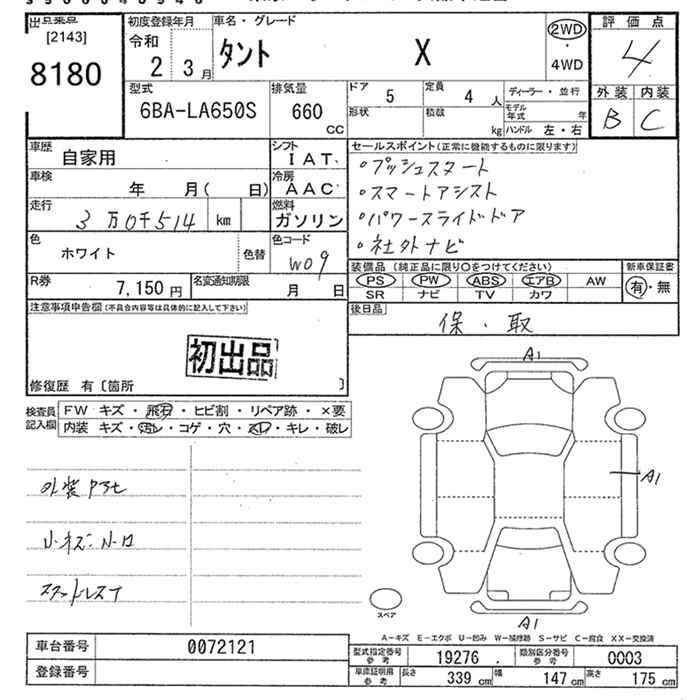 出品票点
[2143]
8180
初度登録年月
令和
2 3月
車名・グレード
タント X
2WD
4WD
評価点
4
外装 内装
B C
型式
6BA-LA650S
排気量
660
CC
ドア 5
定員 4 人
形状
積載 kg
ディーラー・並行
モデル年式 年
ハンドル 左・右
車歴
自家用
車検
年 月( 日)
シフト
IAT
冷房
AAC
走行
3万0千514 km
燃料
ガソリン
色
ホワイト
色替
色コード
W09
R券
7,150 円
名変通知期限
月 日
セールスポイント(正常に機能するものに限ります)
・プッシュスタート
・スマートアシスト
・パワースライドドア
・社外ナビ
装備品 (純正品に限り○をつけてください)
PS PW ABS エアB AW
SR ナビ TV カワ
新車保証書
有・無
後日品
保・取
注意事項申告欄(不具合内容等は具体的に記入して下さい)
初出品
修復歴 有〔箇所 〕
検査員記入欄
FW キズ・飛石・ヒビ割・リペア跡・×要
内装 キズ・汚レ・コゲ・穴・スレ・キレ・破レ
小キズ・小凹
スタッドレスT
A1
A1
A1
スペア
A-キズ E-エクボ U-凹み W-補修跡 S-サビ C-腐食 XX-交換済
車台番号 0072121
登録番号
型式指定番号 参考 19276
類別区分番号 参考 0003
車庫証明用 参考
長さ 339 cm
幅 147 cm
高さ 175 cm